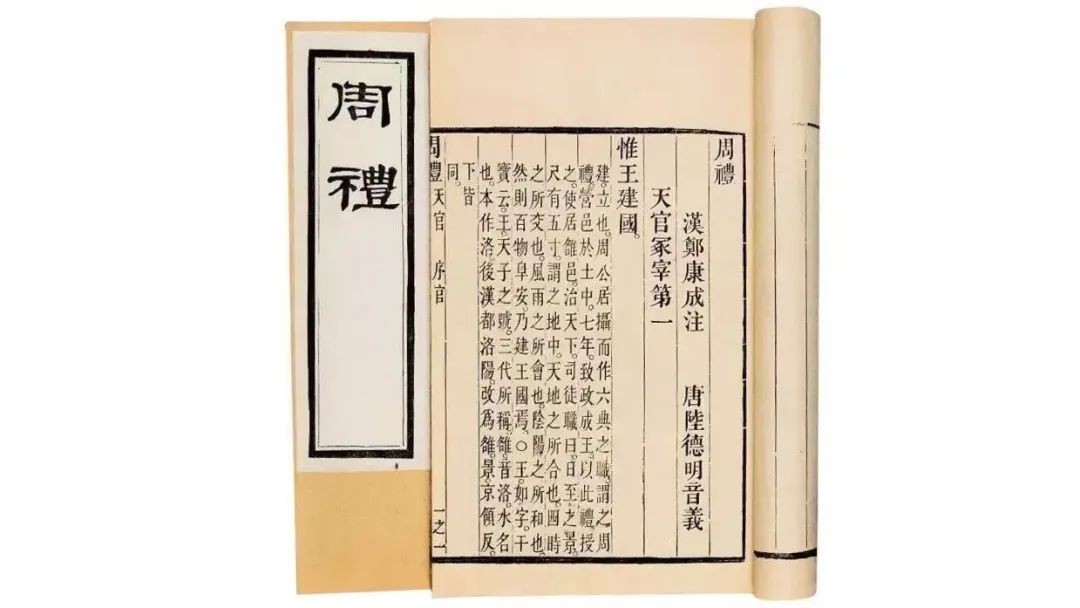 周禮
周禮
漢鄭康成注　唐陸德明音義
天官冢宰第一
惟王建國。
建。立也。周公居攝而作六典之職。謂之周
禮。營邑於土中。七年。致政成王。以此禮授
之。使居雒邑。治天下。司徒職曰。日至之景。
尺有五寸。謂之地中。天地之所合也。四時
之所交也。風雨之所會也。陰陽之所和也。
然則百物阜安。乃建王國焉。○王。如字。干
寶云。王。天子之號。三代所稱。雒。音洛。水名
也。本作洛。後漢都洛陽。改爲雒。景。京領反。
下皆
同。
周禮　天官　序官　一之一